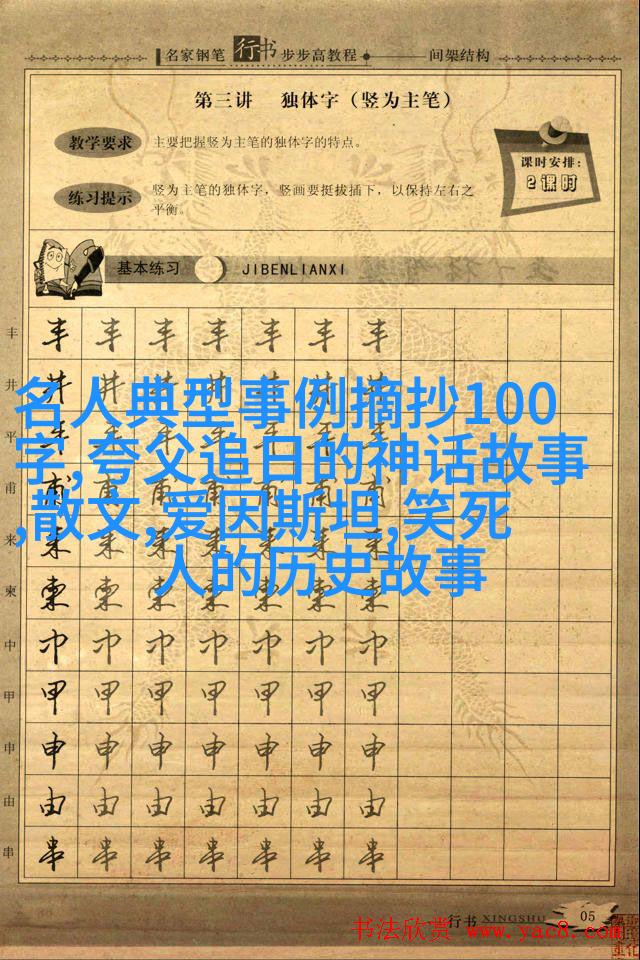 名家钢笔行书步步高教程 间架结构
第三讲 独体字（竖为主笔）
教学要求 主要把握竖为主笔的独体字的特点。
练习提示 竖为主笔的独体字，竖画要挺拔插下，以保持左右之
平衡。
课时安排：
2课时
基本练习 JIBENLIANXI
丰 丰 丰 丰 丰 丰 丰 丰
井 井 井 井 井 井 井 井
名人典型事例摘抄100
字,夸父追日的神话故事
,散文,爱因斯坦,笑死
人的历史故事
平
甫
来
柬 柬 柬 柬 柬 柬 柬 柬
中 中 中 中 中 中 中 中
甲 甲 甲 甲 甲 甲 甲 甲
申 申 申 申 申 申 申 申
由 由 由 由 由 由 由 由
串 串 串 串 串 串 串 串
行书 XINGSHU 05
书法欣赏 www.yac8.com